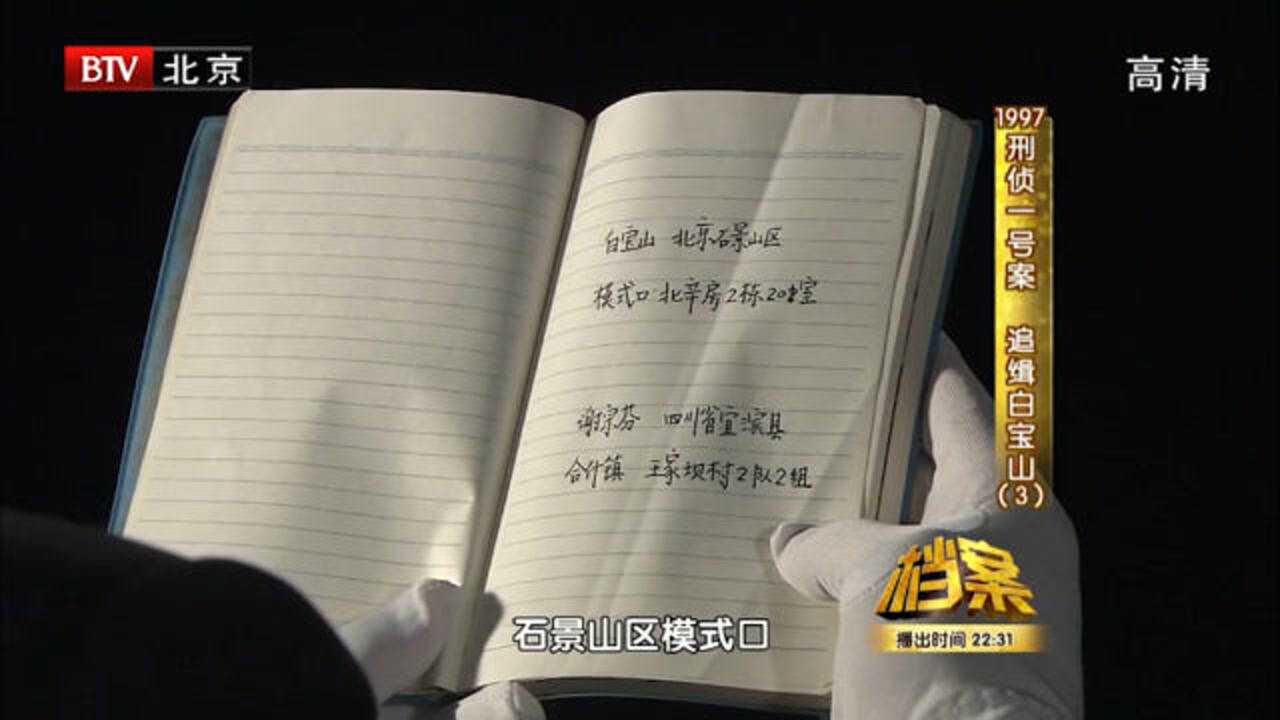 BTV 北京
高清
1997刑侦一号案 追缉白宝山(3)
白宝山 北京石景山区
模式口 北辛房2栋20室
谢宗芬 四川省宜滨县
合什镇 王家坝村2队2组
石景山区模式口
档案
播出时间 22:31